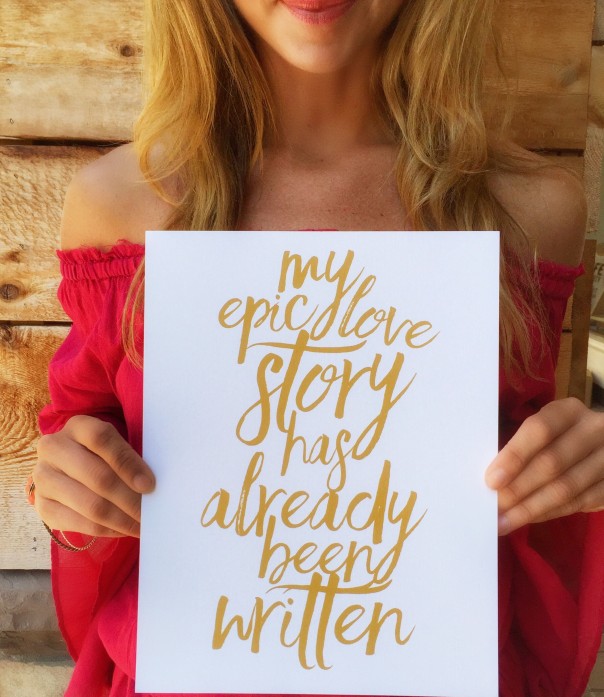 my
epic love
story
has
already
been
written